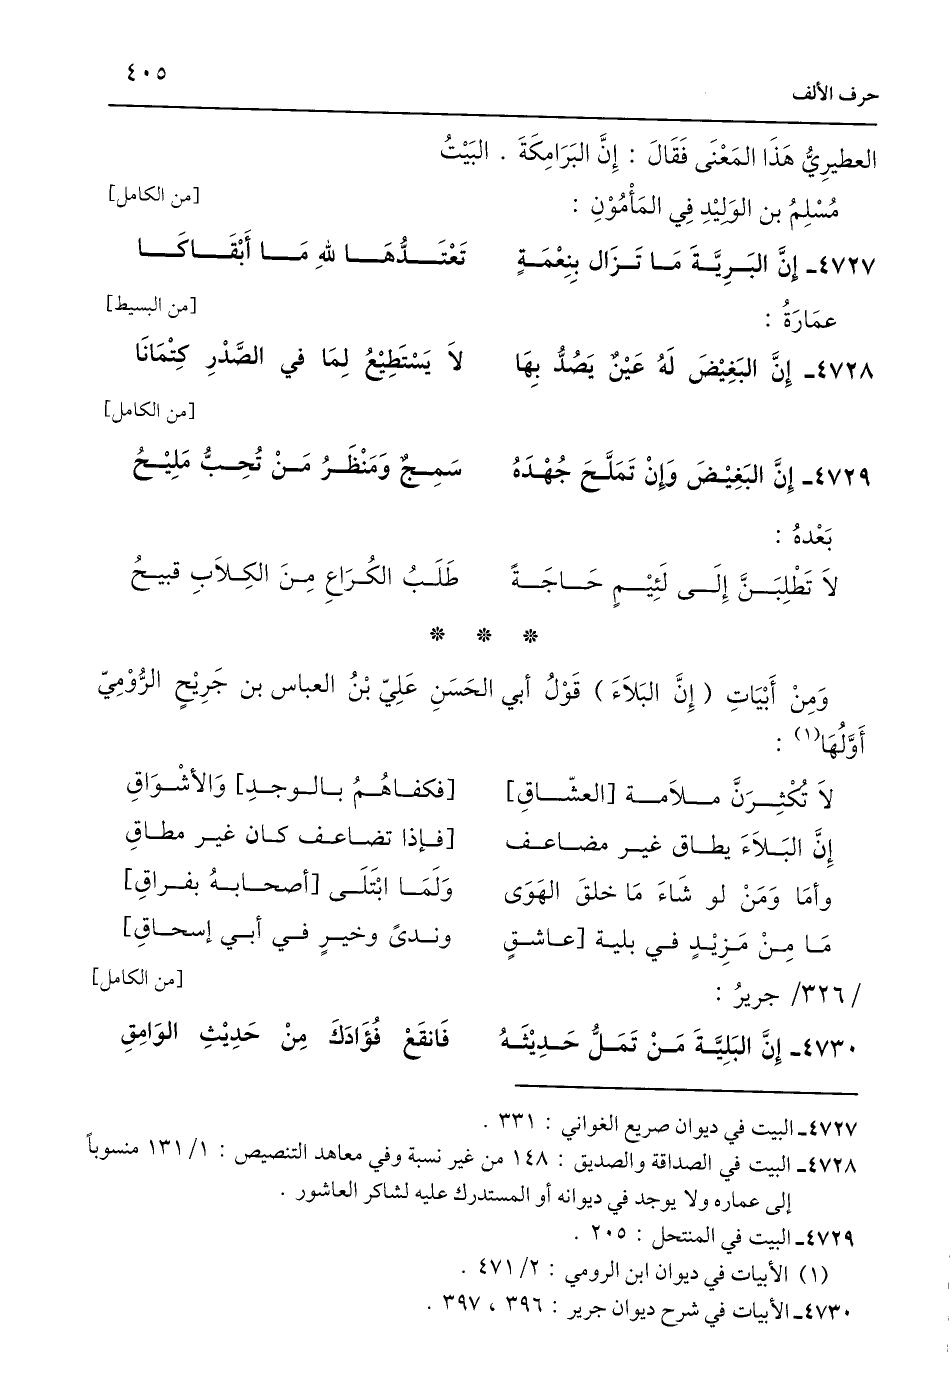 ٤٠٥
حرف الألف
العطيريُّ هَذَا المَعْنَى فَقَالَ : إِنَّ البَرَامِكَةَ . البَيْتُ
مُسْلِمُ بن الوَلِيْدِ فِي المَأْمُوْنِ :
[من الكامل]
٤٧٢٧ـ إِنَّ البَرِيَّةَ مَا تَزَال بِنِعْمَةٍ تَعْتَدُّهَا للهِ مَا أَبْقَاكَا
عمَارَةُ :
[من البسيط]
٤٧٢٨ـ إِنَّ البَغِيْضَ لَهُ عَيْنٌ يَصُدُّ بِهَا لاَ يَسْتَطِيْعُ لِمَا في الصَّدْرِ كِتْمَانَا
[من الكامل]
٤٧٢٩ـ إِنَّ البَغِيْضَ وَإِنْ تَمَلَّحَ جُهْدَهُ سَمِجٌ وَمَنْظَرُ مَنْ تُحِبُّ مَلِيْحُ
بَعْدهُ :
لاَ تَطْلِبَنَّ إِلَى لَئِيْمٍ حَاجَةً طَلَبُ الكُرَاعِ مِنَ الكِلاَبِ قبيحُ
* * *
وَمِنْ أَبْيَاتِ ( إِنَّ البَلاَءَ ) قَوْلُ أبي الحَسَنِ عَلِيّ بْنُ العباس بن جَرِيْحٍ الرُّوْمِيّ
أَوَّلُهَا(١) :
لاَ تُكْثِرَنَّ ملاَمة [العشّاقِ] [فكفاهُمُ بالوجدِ] وَالأَشْوَاقِ
إِنَّ البَلاَءَ يطاق غير مضاعف [فإذا تضاعف كان غير مطاقِ
وأمَا وَمَنْ لو شَاءَ مَا خلقَ الهَوَى وَلَمَا ابْتَلَى [أصحابهُ بفراقِ]
مَا مِنْ مَزِيْدٍ في بلية [عاشقٍ وندىً وخيرٍ في أبي إسحاقِ]
/٣٢٦/ جريرُ :
[من الكامل]
٤٧٣٠ـ إِنَّ البَلِيَّةَ مَنْ تَمَلُّ حَدِيْثَهُ فَانقَعْ فُؤَادَكَ مِنْ حَدِيْثِ الوَامِقِ
٤٧٢٧ـ البيت في ديوان صريع الغواني : ٣٣١ .
٤٧٢٨ـ البيت في الصداقة والصديق : ١٤٨ من غير نسبة وفي معاهد التنصيص : ١/ ١٣١ منسوباً
إلى عماره ولا يوجد في ديوانه أو المستدرك عليه لشاكر العاشور .
٤٧٢٩ـ البيت في المنتحل : ٢٠٥ .
(١) الأبيات في ديوان ابن الرومي : ٢/ ٤٧١ .
٤٧٣٠ـ الأبيات في شرح ديوان جرير : ٣٩٦ ، ٣٩٧ .